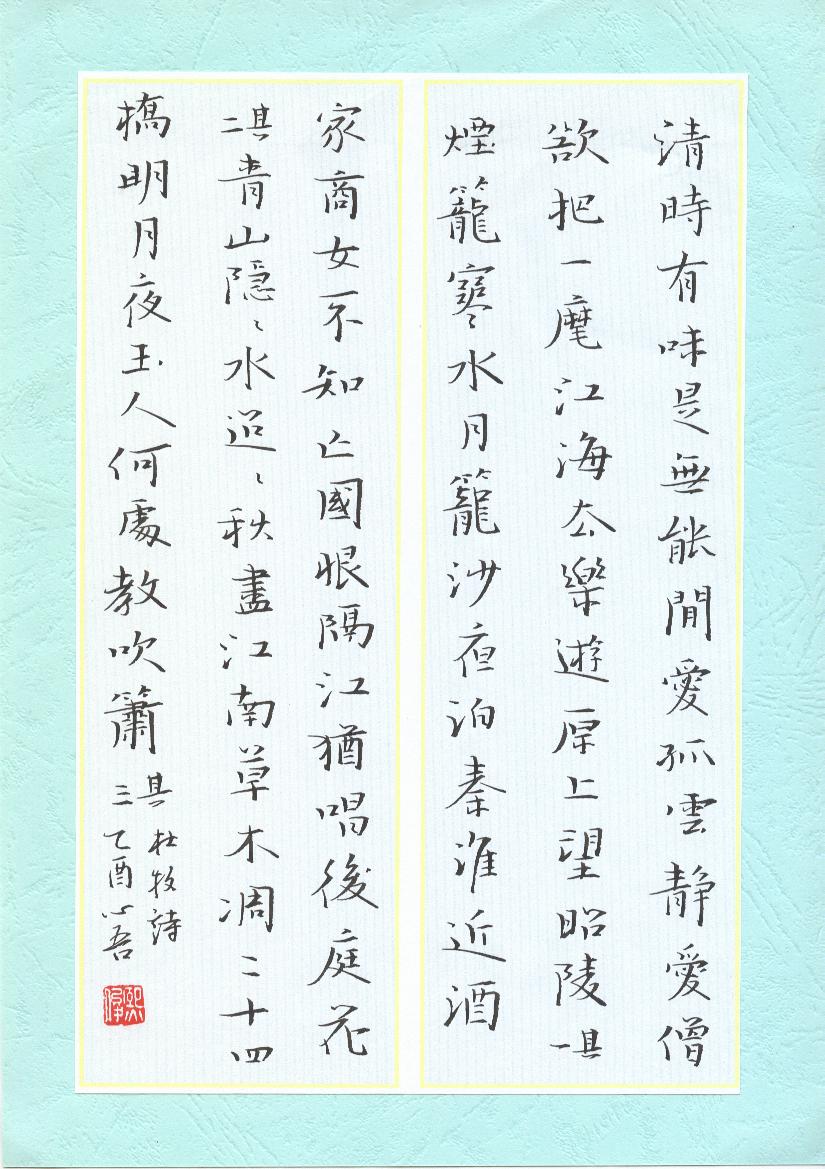 清時有味是無能閒愛孤雲靜愛僧
欲把一麾江海去樂遊原上望昭陵其一
煙籠寒水月籠沙夜泊秦淮近酒
家商女不知亡國恨隔江猶唱後庭花
其二青山隱〻水迢〻秋盡江南草木凋二十四
橋明月夜玉人何處教吹簫其三
杜牧詩
乙酉心吾